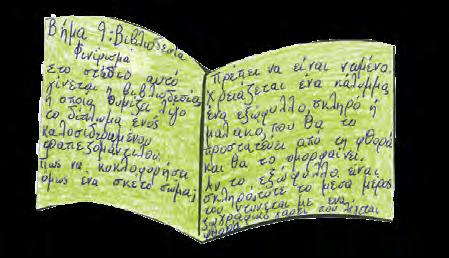 Βήμα 9: Βιβλιοδεσία
Φινίρισμα
Στο στάδιο αυτό
γίνεται η βιβλιοδεσία,
η οποία θυμίζει λίγο
το δίπλωμα ενός
καλοσιδερωμένου
τραπεζομάντιλου.
Πώς να κυκλοφορήσει
όμως ένα σκέτο σώμα;
Πρέπει να είναι ντυμένο.
Χρειάζεται ένα κάλυμμα,
ένα εξώφυλλο, σκληρό ή
μαλακό, που θα το
προστατεύει από τη φθορά
και θα το ομορφαίνει.
Αν το εξώφυλλο είναι
σκληρό, τότε το μέσα μέρος
του ντύνεται με ένα
χαρτί που λέγεται